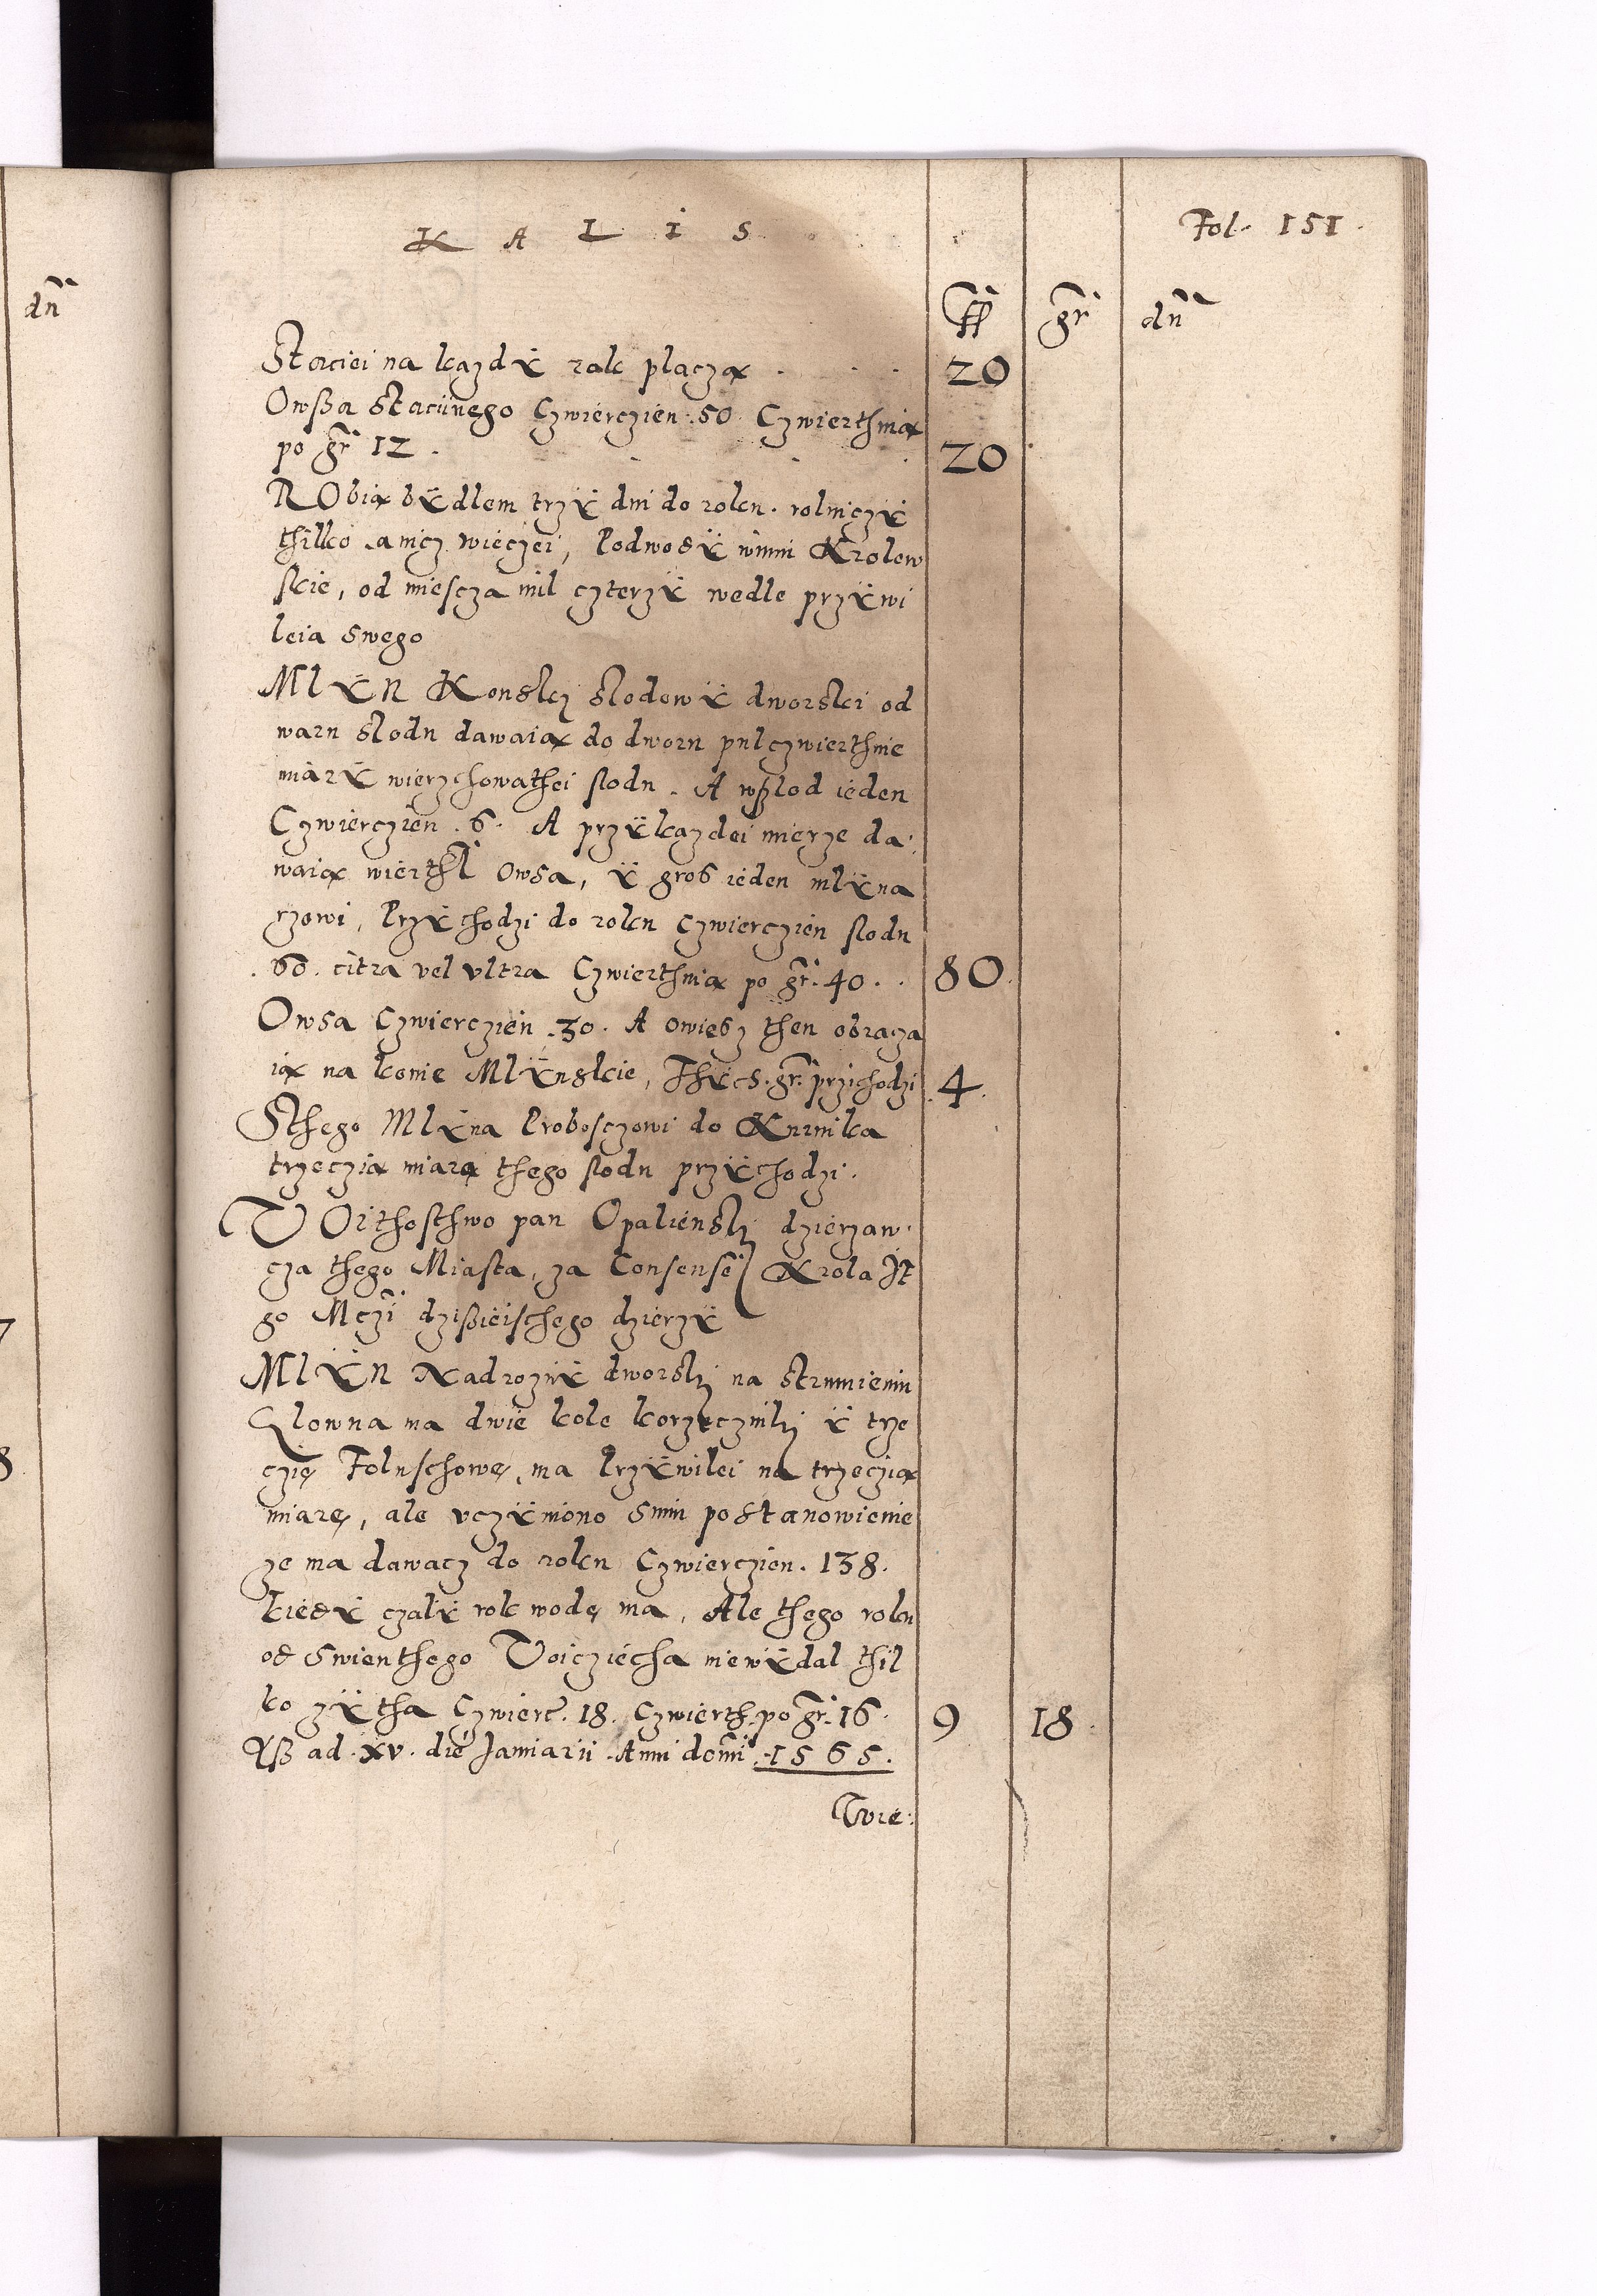 K A L I S
Fol. 151.
ff gr dn
dn
Staciei na kazdÿ rok placzą . . . 20
Owßa Staciinego Czwierczien . 50 . Czwierthnią
po gr 12 . . . . 20
RObią bÿdlem trzÿ dni do roku . rolniczÿ
thilko . a niczi wieczei, Podwodÿ winni Krolew
skie, od miescza mil czterzÿ wedle przÿwi
leia swego
MlÿN Konski slodowÿ dworski od
waru slodu dawaią do dworu pulczwierthnie
miarÿ wierzchowathei slodu . A wßlod ieden
Czwierczien . 6 . A przÿ kazdei mierze da:
waią wierthl Owsa, ÿ gros ieden mlÿna
rzowi, Przÿchodzi do roku Czwierczien slodu
. 60 . citra vel vltra Czwierthnia po gr. 40 . . 80.
Owsa Czwierczien . 30 . A owies then obracza
ią na konie Mlÿnskie, Thÿcs. gr. przichodzi 4.
Sthego Mlÿna Proboszczowi do Kurnika
trzeczią miarą thego slodu przÿchodzi .
WOithosthwo pan Opalienski dzierzaw:
cza thego Miasta, za Consensem Krola Je
go Mczi dzißieischego dzierzÿ
MlÿN Nadroznÿ dworski na strumieniu
Glowna ma dwie kole korzecznikj ÿ trze
czie Foluschowe, ma Przÿwilei na trzeczią
miare, ale vczÿniono snim postanowienie
ze ma dawacz do roku Czwierczien . 138 .
kiedÿ czalÿ rok wode ma, Ale thego roku
od Swienthego Voicziecha niewÿdal thil
ko zÿtha Czwierc. 18 . Czwierth. po gr. 16 . 9 18 .
Aß ad . XV . die Januarii . Anni domi . 1565 .
Wie:
7
8